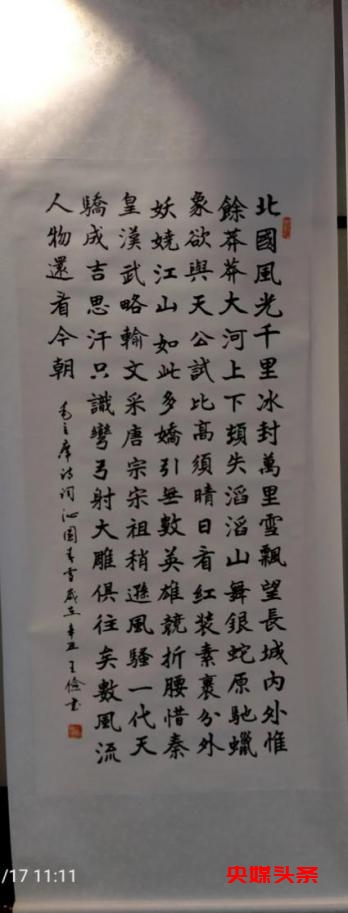 北國風光千里冰封萬里雪飄望長城內外惟
餘莽莽大河上下頓失滔滔山舞銀蛇原馳蠟
象欲與天公試比高須晴日看紅裝素裹分外
妖嬈江山如此多嬌引無數英雄競折腰惜秦
皇漢武略輸文采唐宗宋祖稍遜風騷一代天
驕成吉思汗只識彎弓射大雕俱往矣數風流
人物還看今朝
毛主席诗词沁園春雪歲在辛丑王儉书
/17 11:11
央媒头条